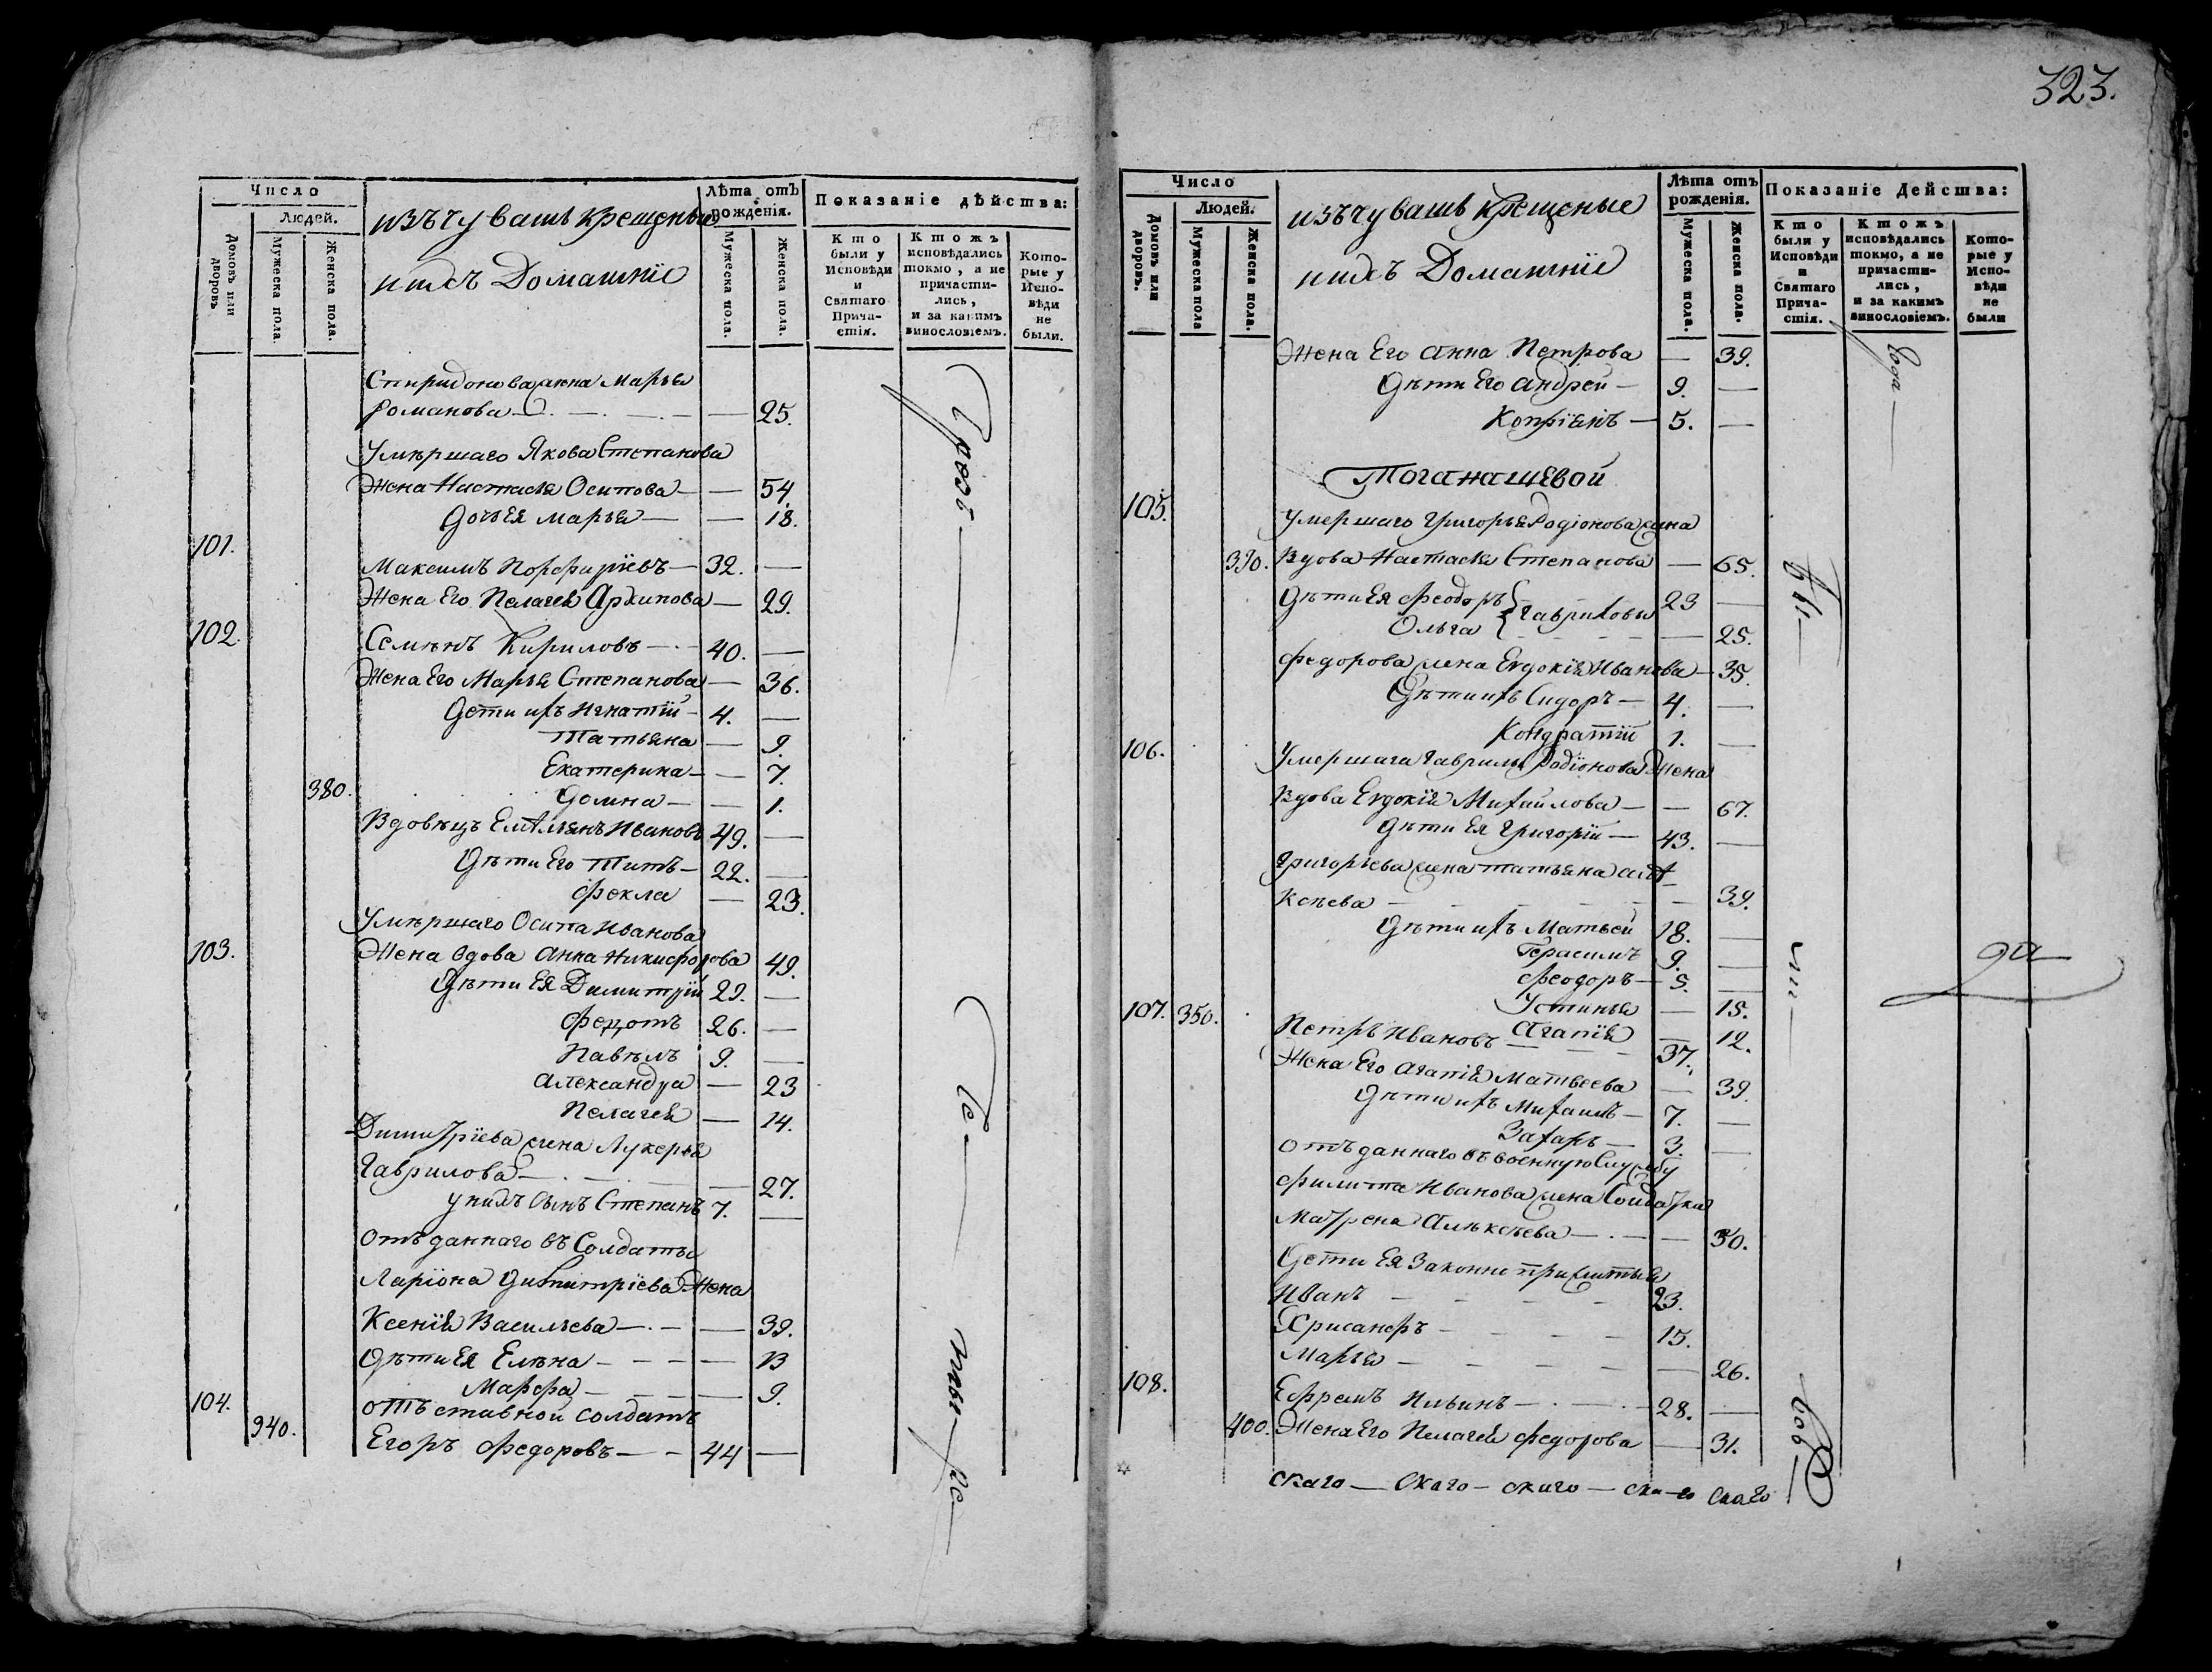 323.
Число
Людей.
Домовъ или дворовъ
Мужеска пола.
Женска пола.
изъ чувашъ крещеныя
и ихъ Домашніе
Лѣта отъ рожденія.
Мужеска пола.
Женска пола.
Показаніе дѣйства:
Кто были у Исповѣди и Святаго Причастія.
Ктожъ исповѣдались токмо, а не причастились, и за какимъ винословіемъ.
Которые у Исповѣди не были.
Спиридонова жена Марья
Романова — 25.
Умѣршаго Якова Степанова
Жена Настасья Осипова — — 54.
Дочь Ея Марья — — 18.
101.
Максимъ Порфирьевъ — 32. —
Жена Его Пелагея Архипова — 29.
102.
Семенъ Кириловъ — 40. —
Жена Его Марья Степанова — 36.
Дети ихъ Игнатій — 4. —
Татьяна — 9.
Екатерина — — 7.
380. Домна — — 1.
Вдовецъ Емельянъ Ивановъ 49. —
Дѣти Его Титъ — 22. —
Фекла — 23.
Умѣршаго Осипа Иванова
103. Жена вдова Анна Никифорова 49.
Дѣти Ея Димитрій 29. —
Федотъ 26. —
Павелъ 9. —
Александра — 23
Пелагея — 14.
Димитріева жена Лукерья
Гаврилова — — 27.
у нихъ сынъ Степанъ 7. —
Отъданнаго въ Солдаты
Ларіона Димитріева Жена
Ксенія Васильева — — 39.
Дѣти Ея Елена — — 13
Марфа — — 9.
104. Отъставной солдатъ
340. Егоръ Федоровъ — 44 —
Число
Людей.
Домовъ или дворовъ.
Мужеска пола
Женска пола.
изъ чувашъ крещеные
и ихъ Домашніе
Лѣта отъ рожденія.
Мужеска пола.
Женска пола.
Показаніе Дейсшва:
Кто были у Исповѣди и Святаго Причастія.
Ктожъ исповѣдались токмо, а не причастились, и за какимъ винословіемъ.
Которые у Исповѣди не были
Жена Его Анна Петрова — 39.
Дѣти Его Андрей — 9. —
Копріянъ — 5. —
Тоганашевой
105.
Умершаго Григорья Родіонова жена
390. Вдова Настасья Степанова — 65.
Дѣти Ея Феодоръ Гавриловы 23 —
Ольга — 25.
Федорова жена Евдокія Иванова — 35.
Дѣти ихъ Сидоръ — 4. —
Кондратій 1. —
106.
Умершаго Гаврилы Родіонова Жена
Вдова Евдокія Михайлова — — 67.
Дѣти Ея Григорій — 43. —
Григорьева жена Татьяна Але
ксѣева — 39.
Дѣти ихъ Матвей 18. —
Герасимъ 9. —
Феодоръ — 5. —
Устинья — 15.
107. 350.
Агапія — 12.
Петръ Ивановъ — 37.
Жена Его Агапія Матвеева — 39.
Дѣти ихъ Михаилъ — 7. —
Захаръ — 3. —
Отъданнаго въ военную Службу
Филипа Иванова жена Солдатка
Матрена Алексѣева — 50.
Дети Ея Законно прижитыя
Иванъ — 23.
Хрисанфъ — 15.
Марья — 26.
108.
Ефремъ Ильинъ — 28. —
400. Жена Его Пелагея Федорова — 31.
скаго — скаго — скаго — ска-го скаго